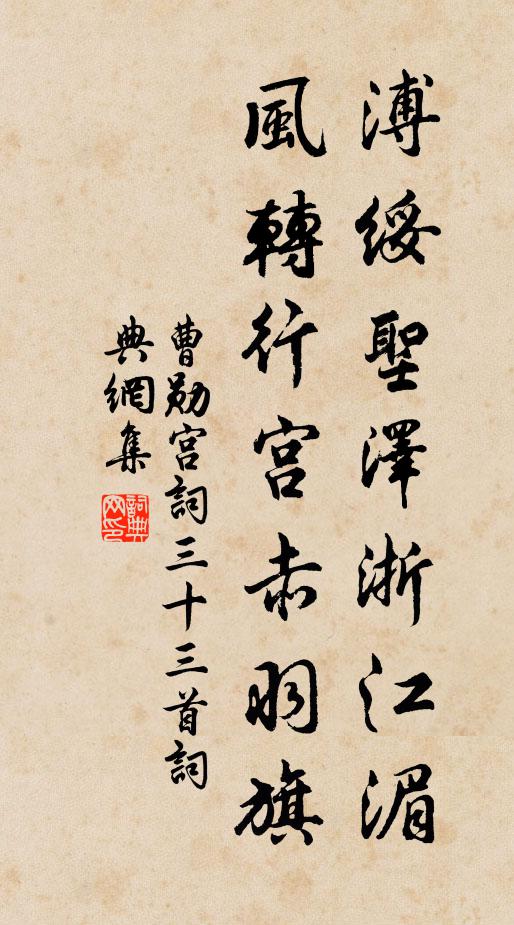 溥綏聖澤浙江湄
風轉行宮赤羽旗
曹勛宮詞三十三首詞
典網集
詞典網印